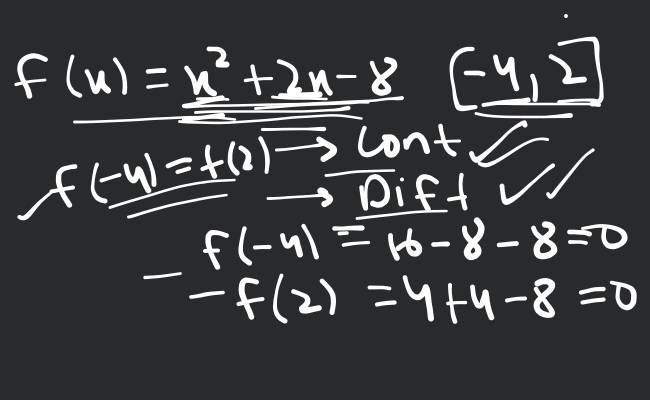 f(x) = x² + 2x - 8 [-4, 2]
f(-4) = f(2) → Cont ✓
→ Diff ✓ ✓
f(-4) = 16 - 8 - 8 = 0
- f(2) = 4 + 4 - 8 = 0